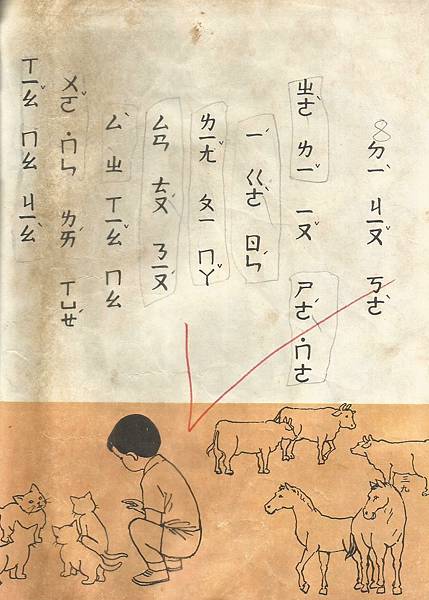 8
ㄉㄧˋ ㄐㄧㄡˇ ㄎㄜˋ
ㄓㄜˋ ㄌㄧˇ ㄧㄡˇ ㄕㄜˊ ˙ㄇㄜ
ㄧˊ ㄍㄜˋ ㄖㄣˊ
ㄌㄧㄤˇ ㄆㄧ ㄇㄚˇ
ㄙㄢ ㄊㄡˊ ㄋㄧㄡˊ
ㄙˋ ㄓ ㄒㄧㄠˇ ㄇㄠ
ㄨㄛˇ ˙ㄇㄣ ㄌㄞˊ ㄒㄩㄝˊ
ㄒㄧㄠˇ ㄇㄠ ㄐㄧㄠˋ
三九